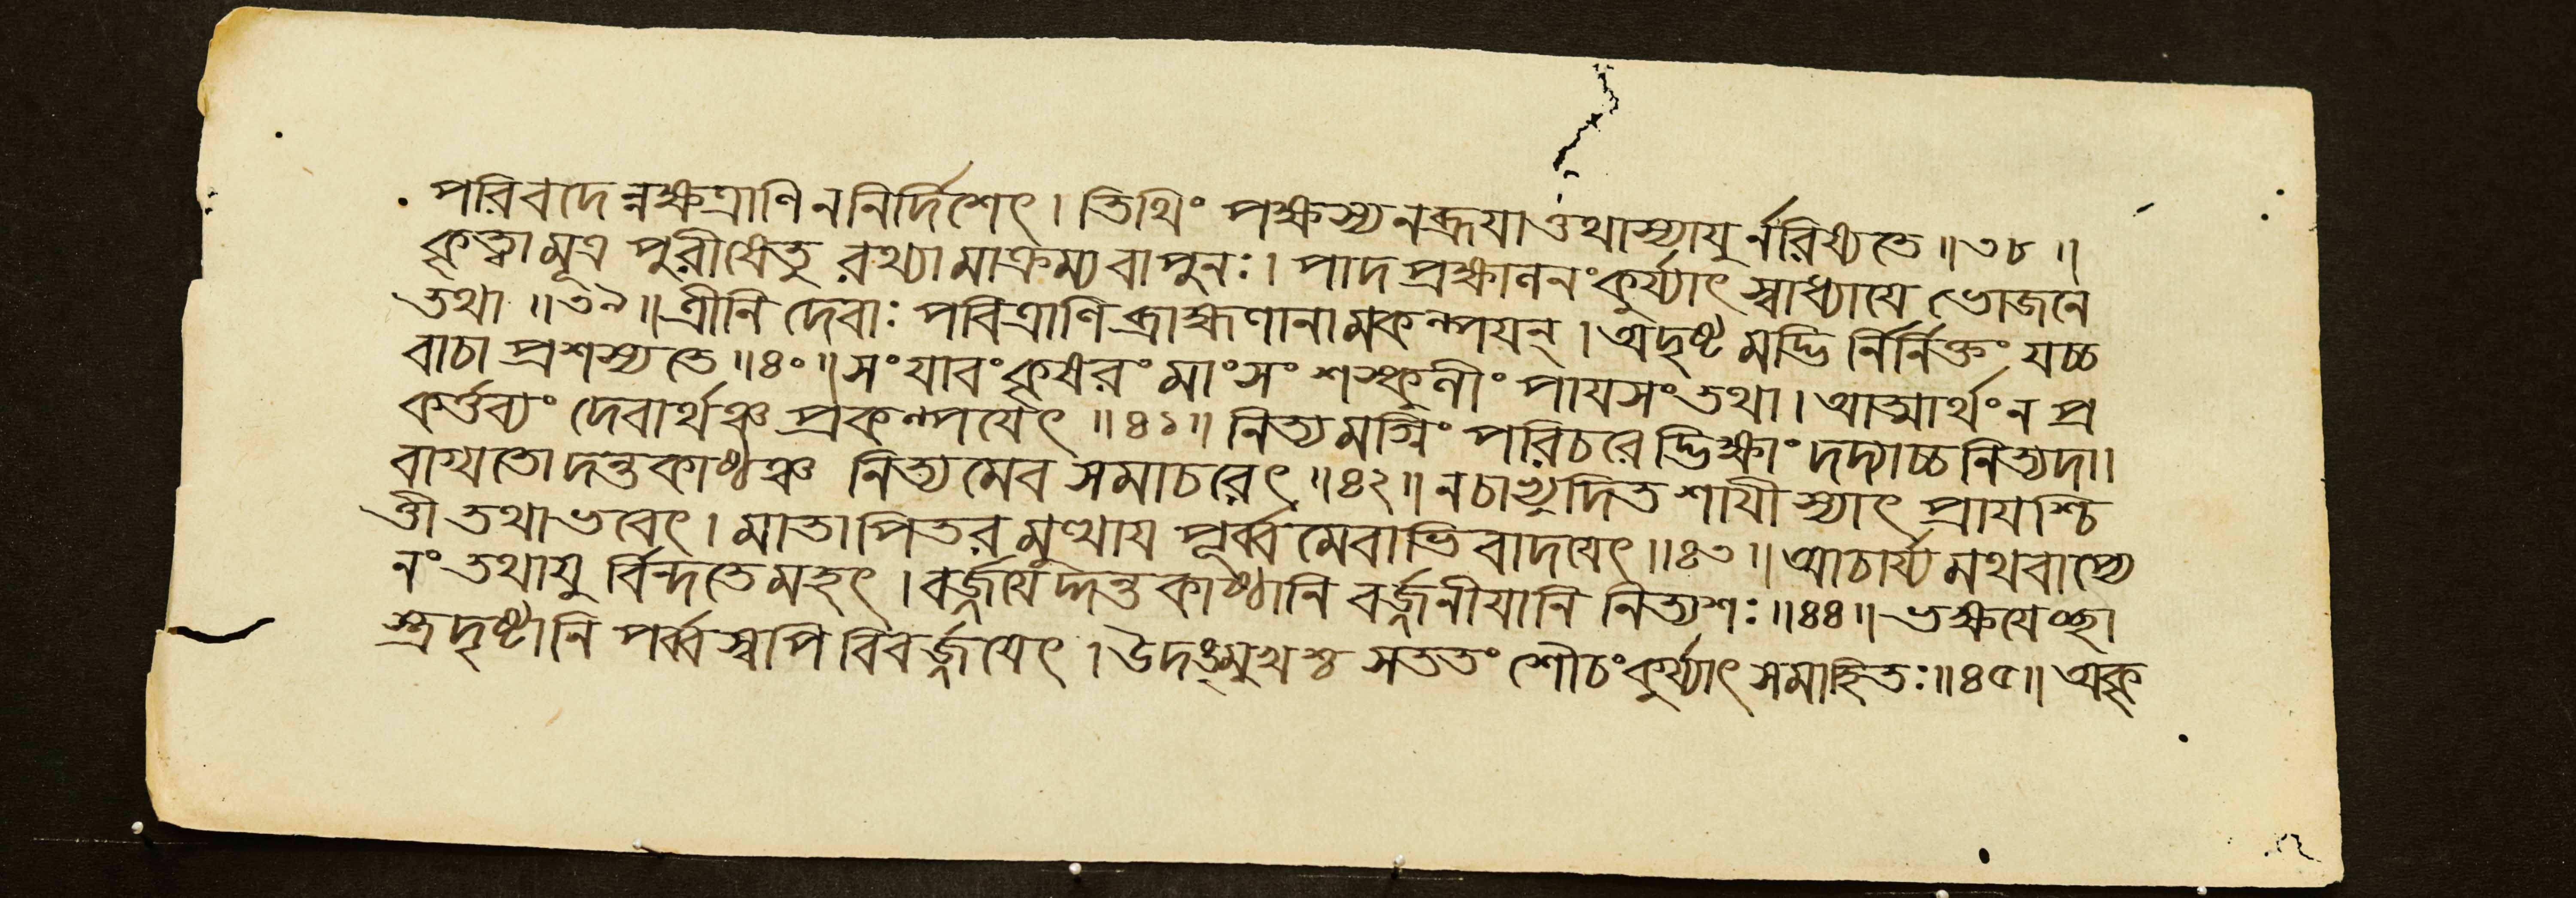 পরিবদেন্নক্ষত্রাণি ন নির্দিশেৎ। তিথিং পক্ষস্য ন ব্রূয়াত্তথাস্যায়ুর্নরিষ্যতে॥৩৮॥
কৃত্বা মূত্র পুরীষেতু রথ্যামাক্রম্য বা পুনঃ। পাদপ্রক্ষালনং কুর্য্যাৎ স্বাধ্যায়ে ভোজনে
তথা॥৩৯॥ ত্রীনি দেবাঃ পবিত্রাণি ব্রাহ্মণানামকল্পয়ন্। অদৃষ্টমদ্ভির্নির্নিক্তং যচ্চ
বাচা প্রশস্যতে॥৪০॥ সংযাবং কৃষরং মাংসং শস্কুলীং পায়সং তথা। আত্মার্থং ন প্র
কর্ত্তব্যং দেবার্থঞ্চ প্রকল্পয়েৎ॥৪১॥ নিত্যমগ্নিং পরিচরেদ্ভিক্ষাং দদ্যাচ্চ নিত্যদা।
বাগ্যতো দন্তকাষ্ঠঞ্চ নিত্যমেব সমাচরেৎ॥৪২॥ ন চাভ্যুদিতশায়ী স্যাৎ প্রায়শ্চি
ত্তী তথা ভবেৎ। মাতাপিতরমুত্থায় পূর্ব্বমেবাভিবাদয়েৎ॥৪৩॥ আচার্য্যমথবাপ্যে
নং তথায়ুর্বিন্দতে মহৎ। বর্জ্জয়েদ্দন্তকাষ্ঠানি বর্জ্জনীয়ানি নিত্যশঃ॥৪৪॥ ভক্ষয়েচ্ছা
স্ত্রদৃষ্টানি পর্ব্বস্বপি বিবর্জ্জয়েৎ। উদঙ্মুখশ্চ সততং শৌচং কুর্য্যাৎ সমাহিতঃ॥৪৫॥ অকৃ